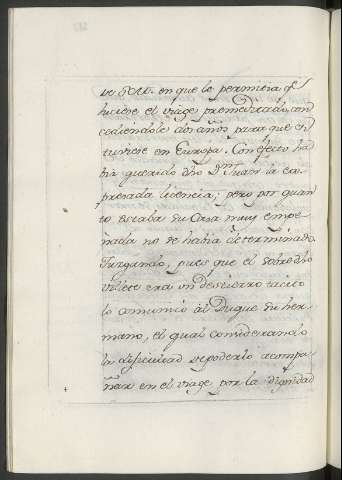 de S.M. en que le permitia qe
hiciese el viage premeditado, con
cediendole dos años para que es
tuviese en Europa. Con efecto ha
bia querido dho Dn Juan la ex
presada licencia; pero por quan
to estaba su Casa muy empe
ñada no se habia determinado.
Juzgando, pues que el sobredho
villete era un destierro tacito
lo comunicó al Duque su her-
mano, el qual considerando
la dificultad de poderlo acompa-
ñar en el viage por la dignidad